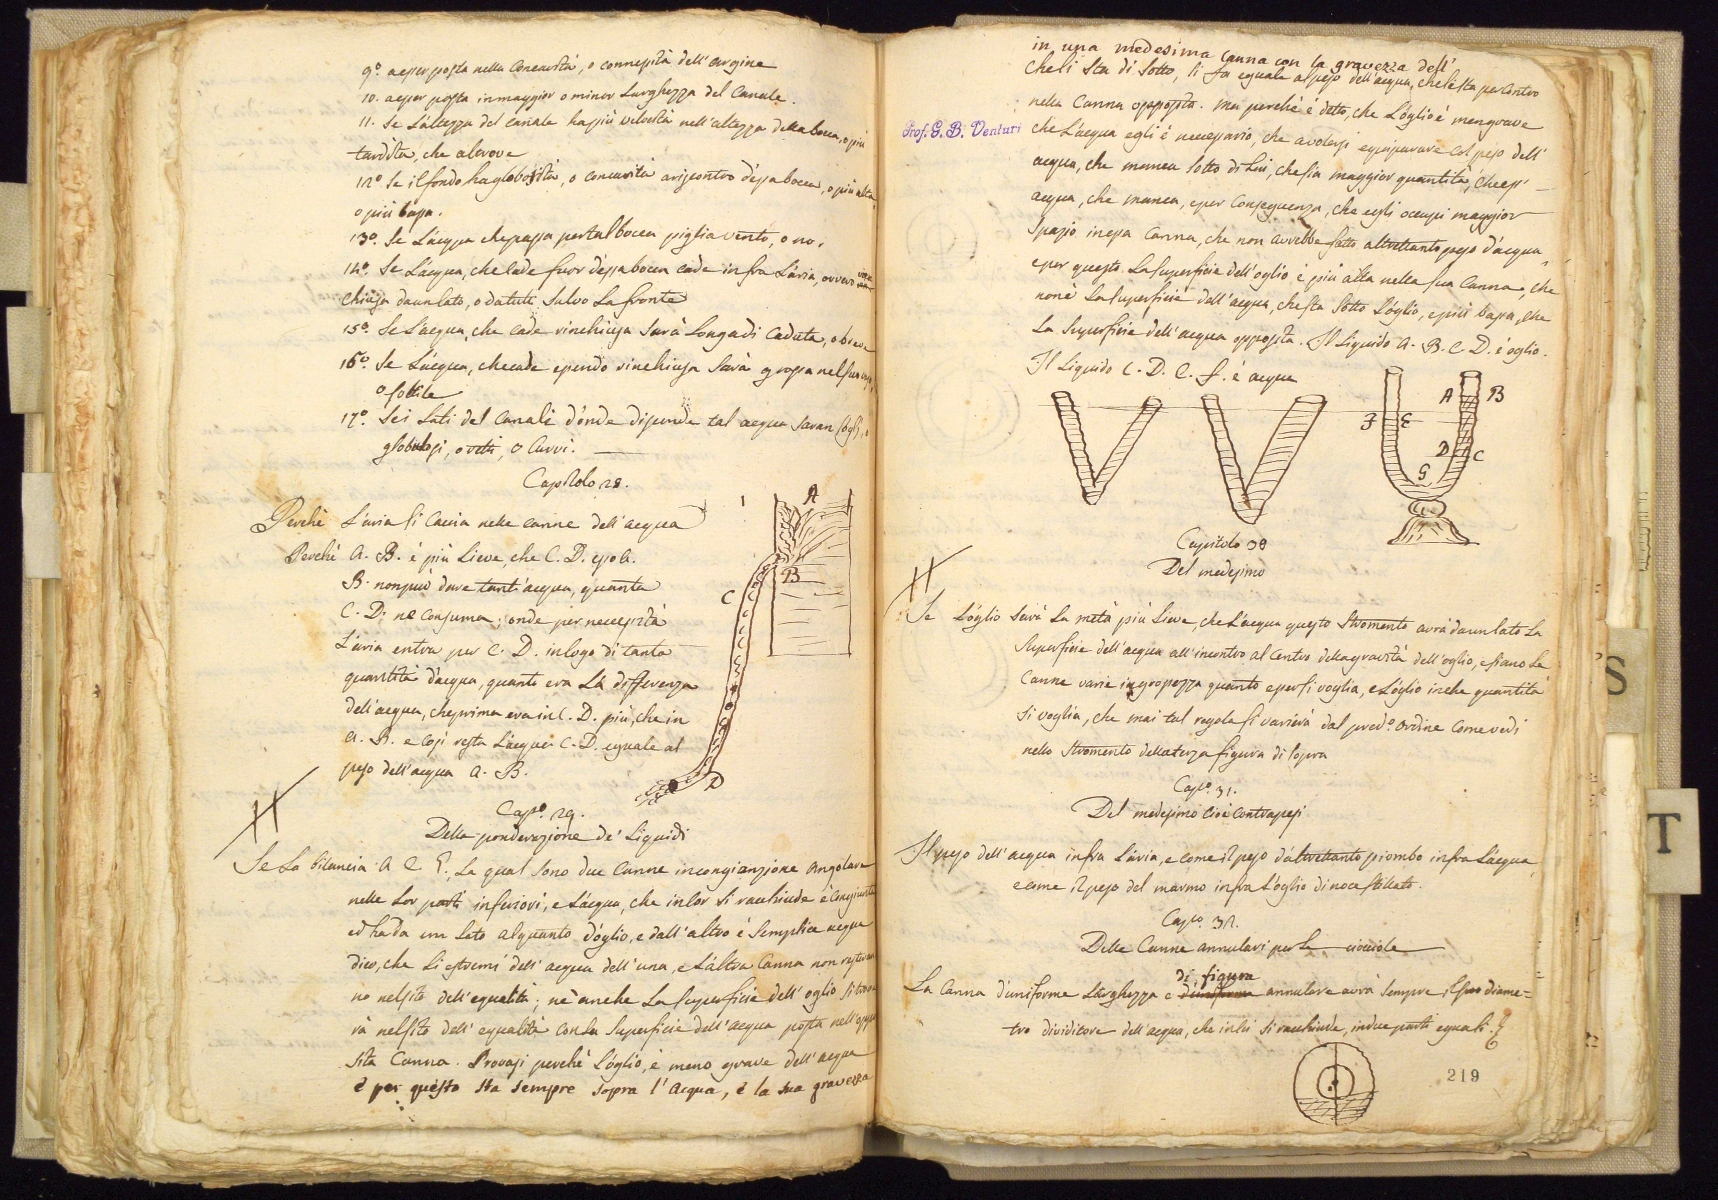 9.° a esser posta nella concavità, o connessità dell'argine
10. a esser posta in maggior o minor Larghezza del Canale.
11. Se L'altezza del canale ha più velocità nell'altezza della bocca, o più
tardità, che altrove
12.° Se il fondo ha globosità, o concavità a riscontro d'essa bocca, o più alta,
o più bassa.
13.° Se L'acqua che passa per tal bocca piglia vento, o no.
14.° Se L'acqua, che Cade fuor d'essa bocca cade infra L'aria, ovvero
chiusa da un lato, o da tutti salvo La fronte
15.° Se L'acqua, che cade rinchiusa Sarà Longa di Caduta, o breve
16.° Se L'acqua, che cade essendo rinchiusa Sarà grossa nel suo
o sottile
17.° Se i Lati del Canale d'onde discende tal acqua saran
globulosi, o retti, o Curvi.
Capitolo 28.
Perchè L'aria si Caccia nelle canne dell'acqua
Perchè A. B. è più Lieve, che C. D. esso A.
B. non può dare tant'acqua, quanta
C. D. ne consuma; onde per necessità
L'aria entra per C. D. in logo di tanta
quantità d'acqua, quanto era La differenza
dell'acqua, che prima era in C. D. più, che in
A. B. e così resta L'acqua C. D. eguale al
peso dell'acqua A. B.
A
B
C
D
Cap.° 29.
Della ponderazione de' Liquidi
Se La bilancia A C E, La qual sono due Canne in congiunzione angolare
nelle Lor parti inferiori, e L'acqua, che in lor si racchiude è Congiunta
ed ha da un Lato alquanto d'oglio, e dall'altro è Semplice acqua
dico, che Li estremi dell'acqua dell'una, e L'altra Canna non resteran
no nel sito dell'egualità; nè anche La superficie dell'oglio si trove
rà nel sito dell'egualità con La superficie dell'acqua posta nell'oppo
sita Canna. Provasi perchè L'oglio, è meno grave dell'acqua
e per questo sta sempre sopra l'acqua, e la sua gravezza
in una medesima Canna con la gravezza dell'
che li sta di sotto, si fa eguale al peso dell'acqua, che li sta per contro
nella Canna opposita. Ma perchè è detto, che L'oglio è men grave
Prof. G. B. Venturi
che L'acqua egli è necessario, che a volersi equiparare col peso dell'
acqua, che manca sotto di Lui, che sia maggior quantità, che
acqua, che manca, e per Conseguenza, che egli occupi maggior
spazio in essa Canna, che non avrebbe fatto altrettanto peso d'acqua,
e per questo La superficie dell'oglio è più alta nella sua Canna, che
non è La superficie dall'acqua, che sta sotto L'oglio, e più bassa, che
La superficie dell'acqua opposita. Il Liquido A. B. C. D. è oglio.
Il Liquido C. D. E. f. è acqua
A B
F E
D C
G
Capitolo 30
Del medesimo
Se L'oglio Sarà La metà più Lieve, che L'acqua questo Stromento avrà da un lato La
superficie dell'acqua all'incontro al Centro della gravità dell'oglio, e siano Le
Canne varie in grossezza quanto esser si voglia, e L'oglio in che quantità
si voglia, che mai tal regola si varierà dal pred.° ordine Come vedi
nello Stromento della terza figura di sopra
Cap.° 31.
Del medesimo cioè Contrapesi
Il peso dell'acqua infra L'aria, e come il peso d'altrettanto piombo infra L'acqua,
e come il peso del marmo infra L'oglio di noce stillato.
Cap.° 32.
Delle Canne annulari per Le cicciole
La Canna d'uniforme Larghezza e di figura annulare avrà sempre il suo diame=
tro dividitore dell'acqua, che in lei si racchiude, in due parti eguali.
219
S
T